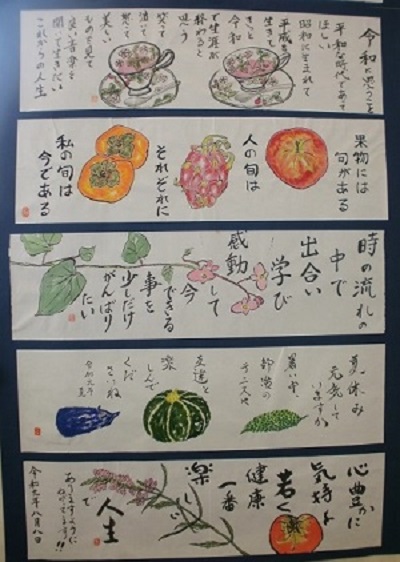 令和に思うこと
平和な時代であって
ほしい
昭和に生まれて
平成を
生きて
きっと
令和
で生涯が
終わると
思う
笑って
怒って
泣いて
美しい
ものを見て
良い音楽を
聞いて生きたい
これからの人生
果物には
旬がある
人の旬は
それぞれに
私の旬は
今である
時の流れの
中で
出合い
学び
感動
して
今
できる
事を
少しだけ
がんばり
たい
夏休み
元気して
いますか
暑い中、
友達と
楽
しんで
くだ
さいね
令和元年
夏
心豊かに
気持を
若く
健康
一番
楽しい
人生
で
ありますように
令和元年八月八日